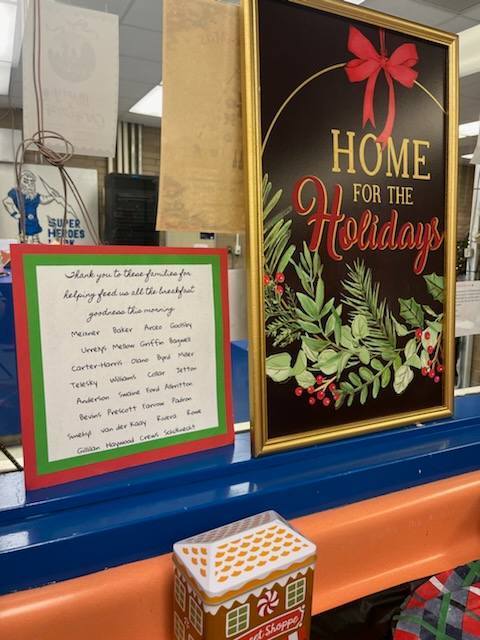 SUPER
HEROES
Thank you to these families for
helping feed us all the breakfast
goodness this morning
Meixner Baker Arceo Goolsby
Urrelys Mellow Griffin Bagwell
Carter-Harris Olano Byrd Miller
Telesky Williams Collar Jetton
Anderson Swaine Ford Albritton
Bevins Prescott Farrow Padron
van der Kaay Rivera Rowe
Gillilan Haywood Crews Schuknecht
HOME
FOR THE
Holidays
Sweet Shoppe